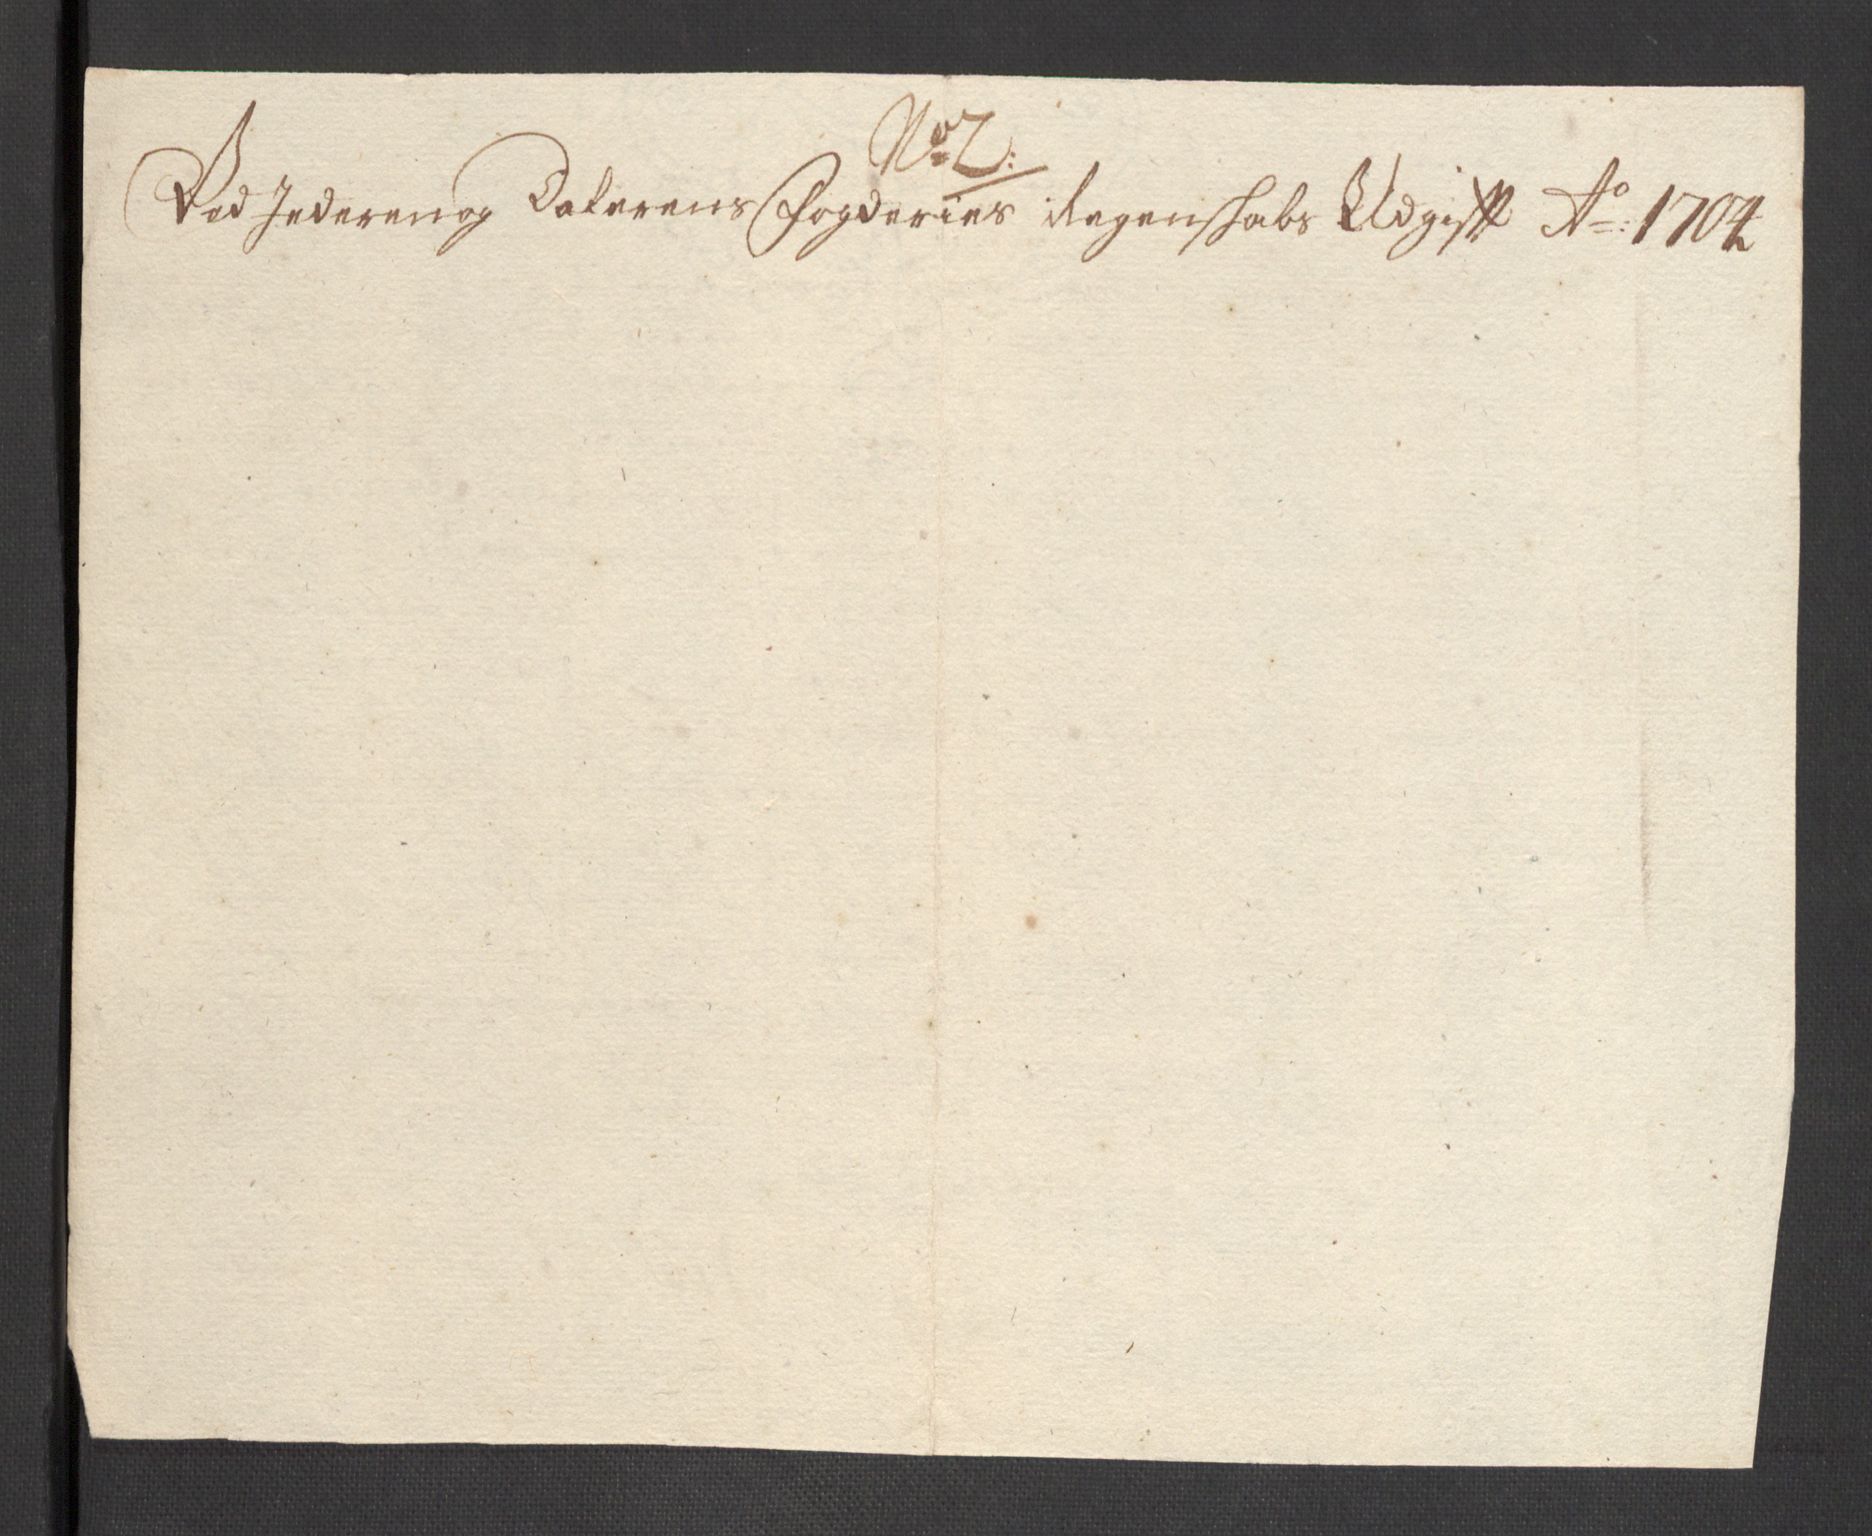 No 2:
Ved Jederen og Dalernes Fogderies Regenskabs Udgifft Ao: 1704